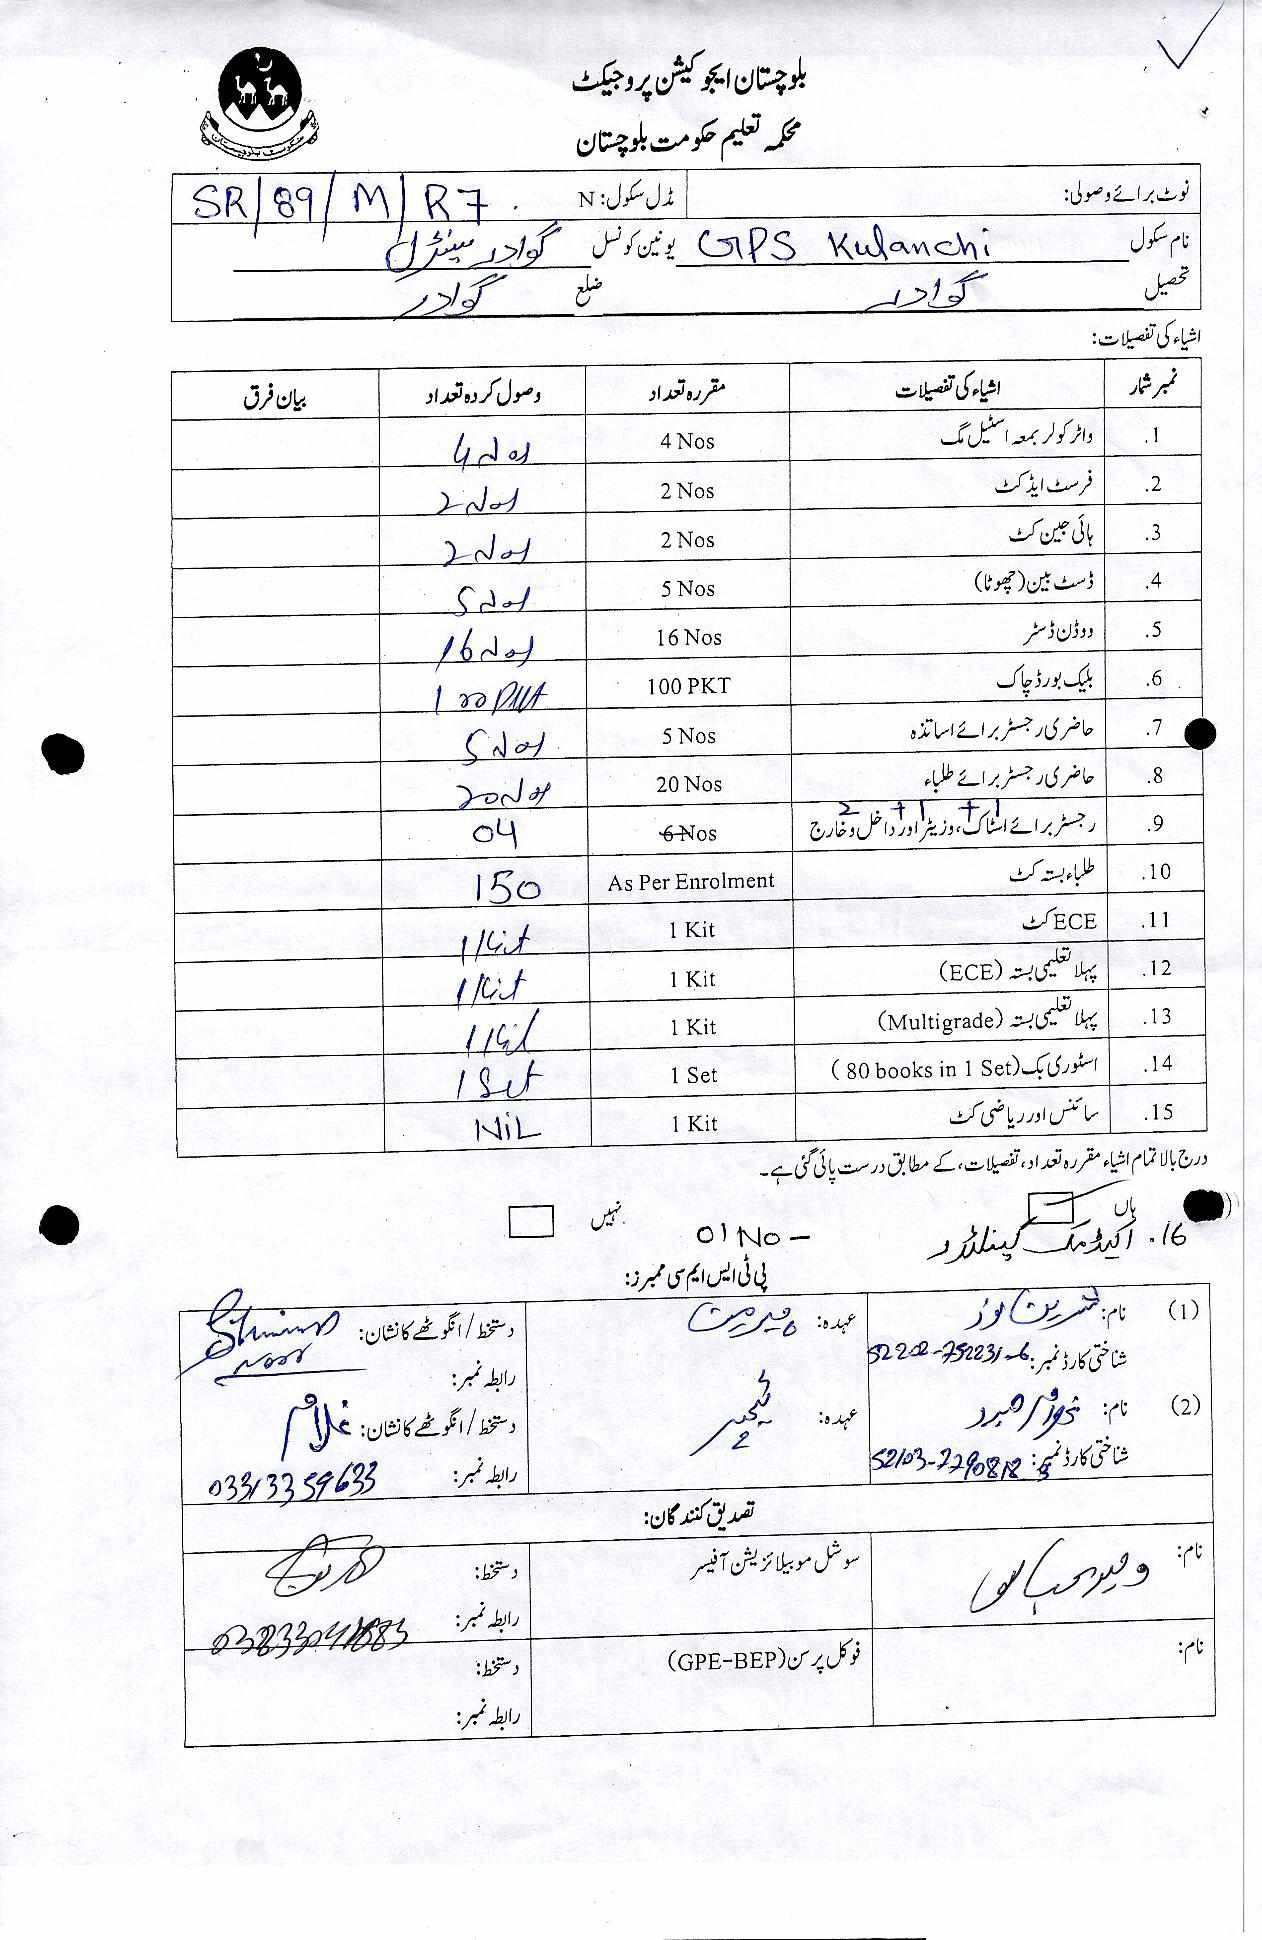 بلوچستان ایجوکیشن پروجیکٹ
محکمہ تعلیم حکومت بلوچستان
نوٹ برائے وصولی: مڈل سکول: N SR/89/M/R7
نام سکول GPS Kulanchi یونین کونسل گوادر سینٹرل
تحصیل گوادر ضلع گوادر
اشیاء کی تفصیلات:
نمبر شمار اشیاء کی تفصیلات مقررہ تعداد وصول کردہ تعداد بیان فرق
1. واٹر کولر بمعہ اسٹیل مگ 4 Nos 4 Nos
2. فرسٹ ایڈ کٹ 2 Nos 2 Nos
3. ہائی جین کٹ 2 Nos 2 Nos
4. ڈسٹ بین (چھوٹا) 5 Nos 5 Nos
5. ووڈن ڈسٹر 16 Nos 16 Nos
6. بلیک بورڈ چاک 100 PKT 100 PKT
7. حاضری رجسٹر برائے اساتذہ 5 Nos 5 Nos
8. حاضری رجسٹر برائے طلباء 20 Nos 20 Nos
2 + 1 + 1
9. رجسٹر برائے اسٹاک، وزیٹر اور داخل و خارج 6 Nos 04
10. طلباء بستہ کٹ As Per Enrolment 150
11. ECE کٹ 1 Kit 1 Kit
12. پہلا تعلیمی بستہ (ECE) 1 Kit 1 Kit
13. پہلا تعلیمی بستہ (Multigrade) 1 Kit 1 Kit
14. اسٹوری بک (80 books in 1 Set) 1 Set 1 Set
15. سائنس اور ریاضی کٹ 1 Kit NIL
درج بالا تمام اشیاء مقررہ تعداد، تفصیلات، کے مطابق درست پائی گئی ہے۔
ہاں نہیں
16. اکیڈمک کیلنڈر 01 No -
پی ٹی ایس ایم سی ممبرز:
(1) نام: شرین نور عہدہ: دستخط/انگوٹھے کا نشان:
شناختی کارڈ نمبر: 52202-752231-6 رابطہ نمبر:
(2) نام: عہدہ: ٹیچر دستخط/انگوٹھے کا نشان: غلام
شناختی کارڈ نمبر: رابطہ نمبر: 03313359633
تصدیق کنندگان:
نام: سوشل موبیلائزیشن آفیسر دستخط:
رابطہ نمبر:
نام: فوکل پرسن (GPE-BEP) دستخط:
رابطہ نمبر: